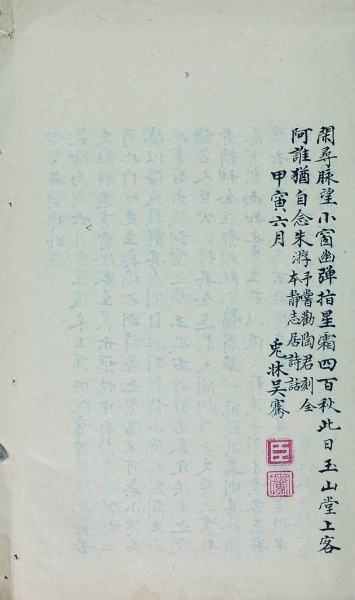 閑尋脉望小窗幽彈指星霜四百秋此日玉山堂上客
阿誰猶自念朱游
予嘗勸陶君刻全
本靜志居詩話
甲寅六月
兎牀吳騫
臣
騫